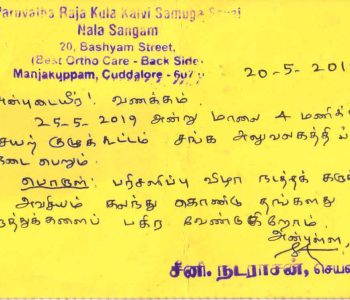 Paruvatha Raja Kula Kalvi Samuga Sevai
Nala Sangam
20, Bashyam Street,
(Best Ortho Care - Back Side
Manjakuppam, Cuddalore - 607
20-5-201
அன்புடையீர்! வணக்கம்.
25-5-2019 அன்று மாலை 4 மணிக்
செயற் குழுக்கூட்டம் சங்க அலுவலகத்தில்
நடை பெறும்.
பொருள்: பரிசளிப்பு விழா நடத்தக் கரு
அவசியம் கலந்து கொண்டு தங்களது
கருத்துக்களைப் பகிர வேண்டுகிறோம்.
அன்புள்ள,
சீனி. நடராசன், செயல